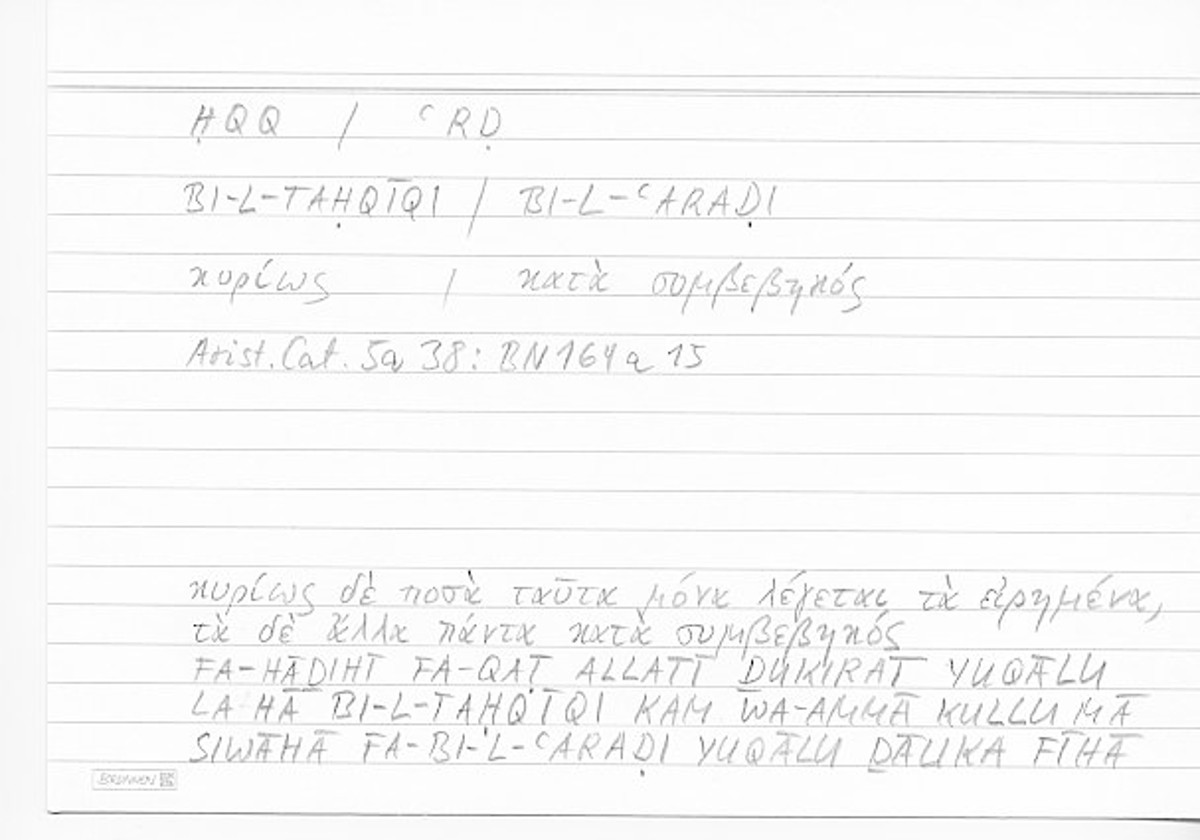 ḤQQ / ʿRḌ
BI-L-TAḤQĪQI / BI-L-ʿARAḌI
κυρίως / κατὰ συμβεβηκός
Arist. Cat. 5a 38: BN 164a 15
κυρίως δὲ ποσὰ ταῦτα μόνα λέγεται τὰ εἰρημένα,
τὰ δὲ ἄλλα πάντα κατὰ συμβεβηκός
FA-HĀḎIHĪ FA-QAṬ ALLATĪ ḎUKIRAT YUQĀLU
LAHĀ BI-L-TAḤQĪQI KAM WA-AMMĀ KULLU MĀ
SIWĀHĀ FA-BI-L-ʿARAḌI YUQĀLU ḎĀLIKA FĪHĀ
BRUNNEN